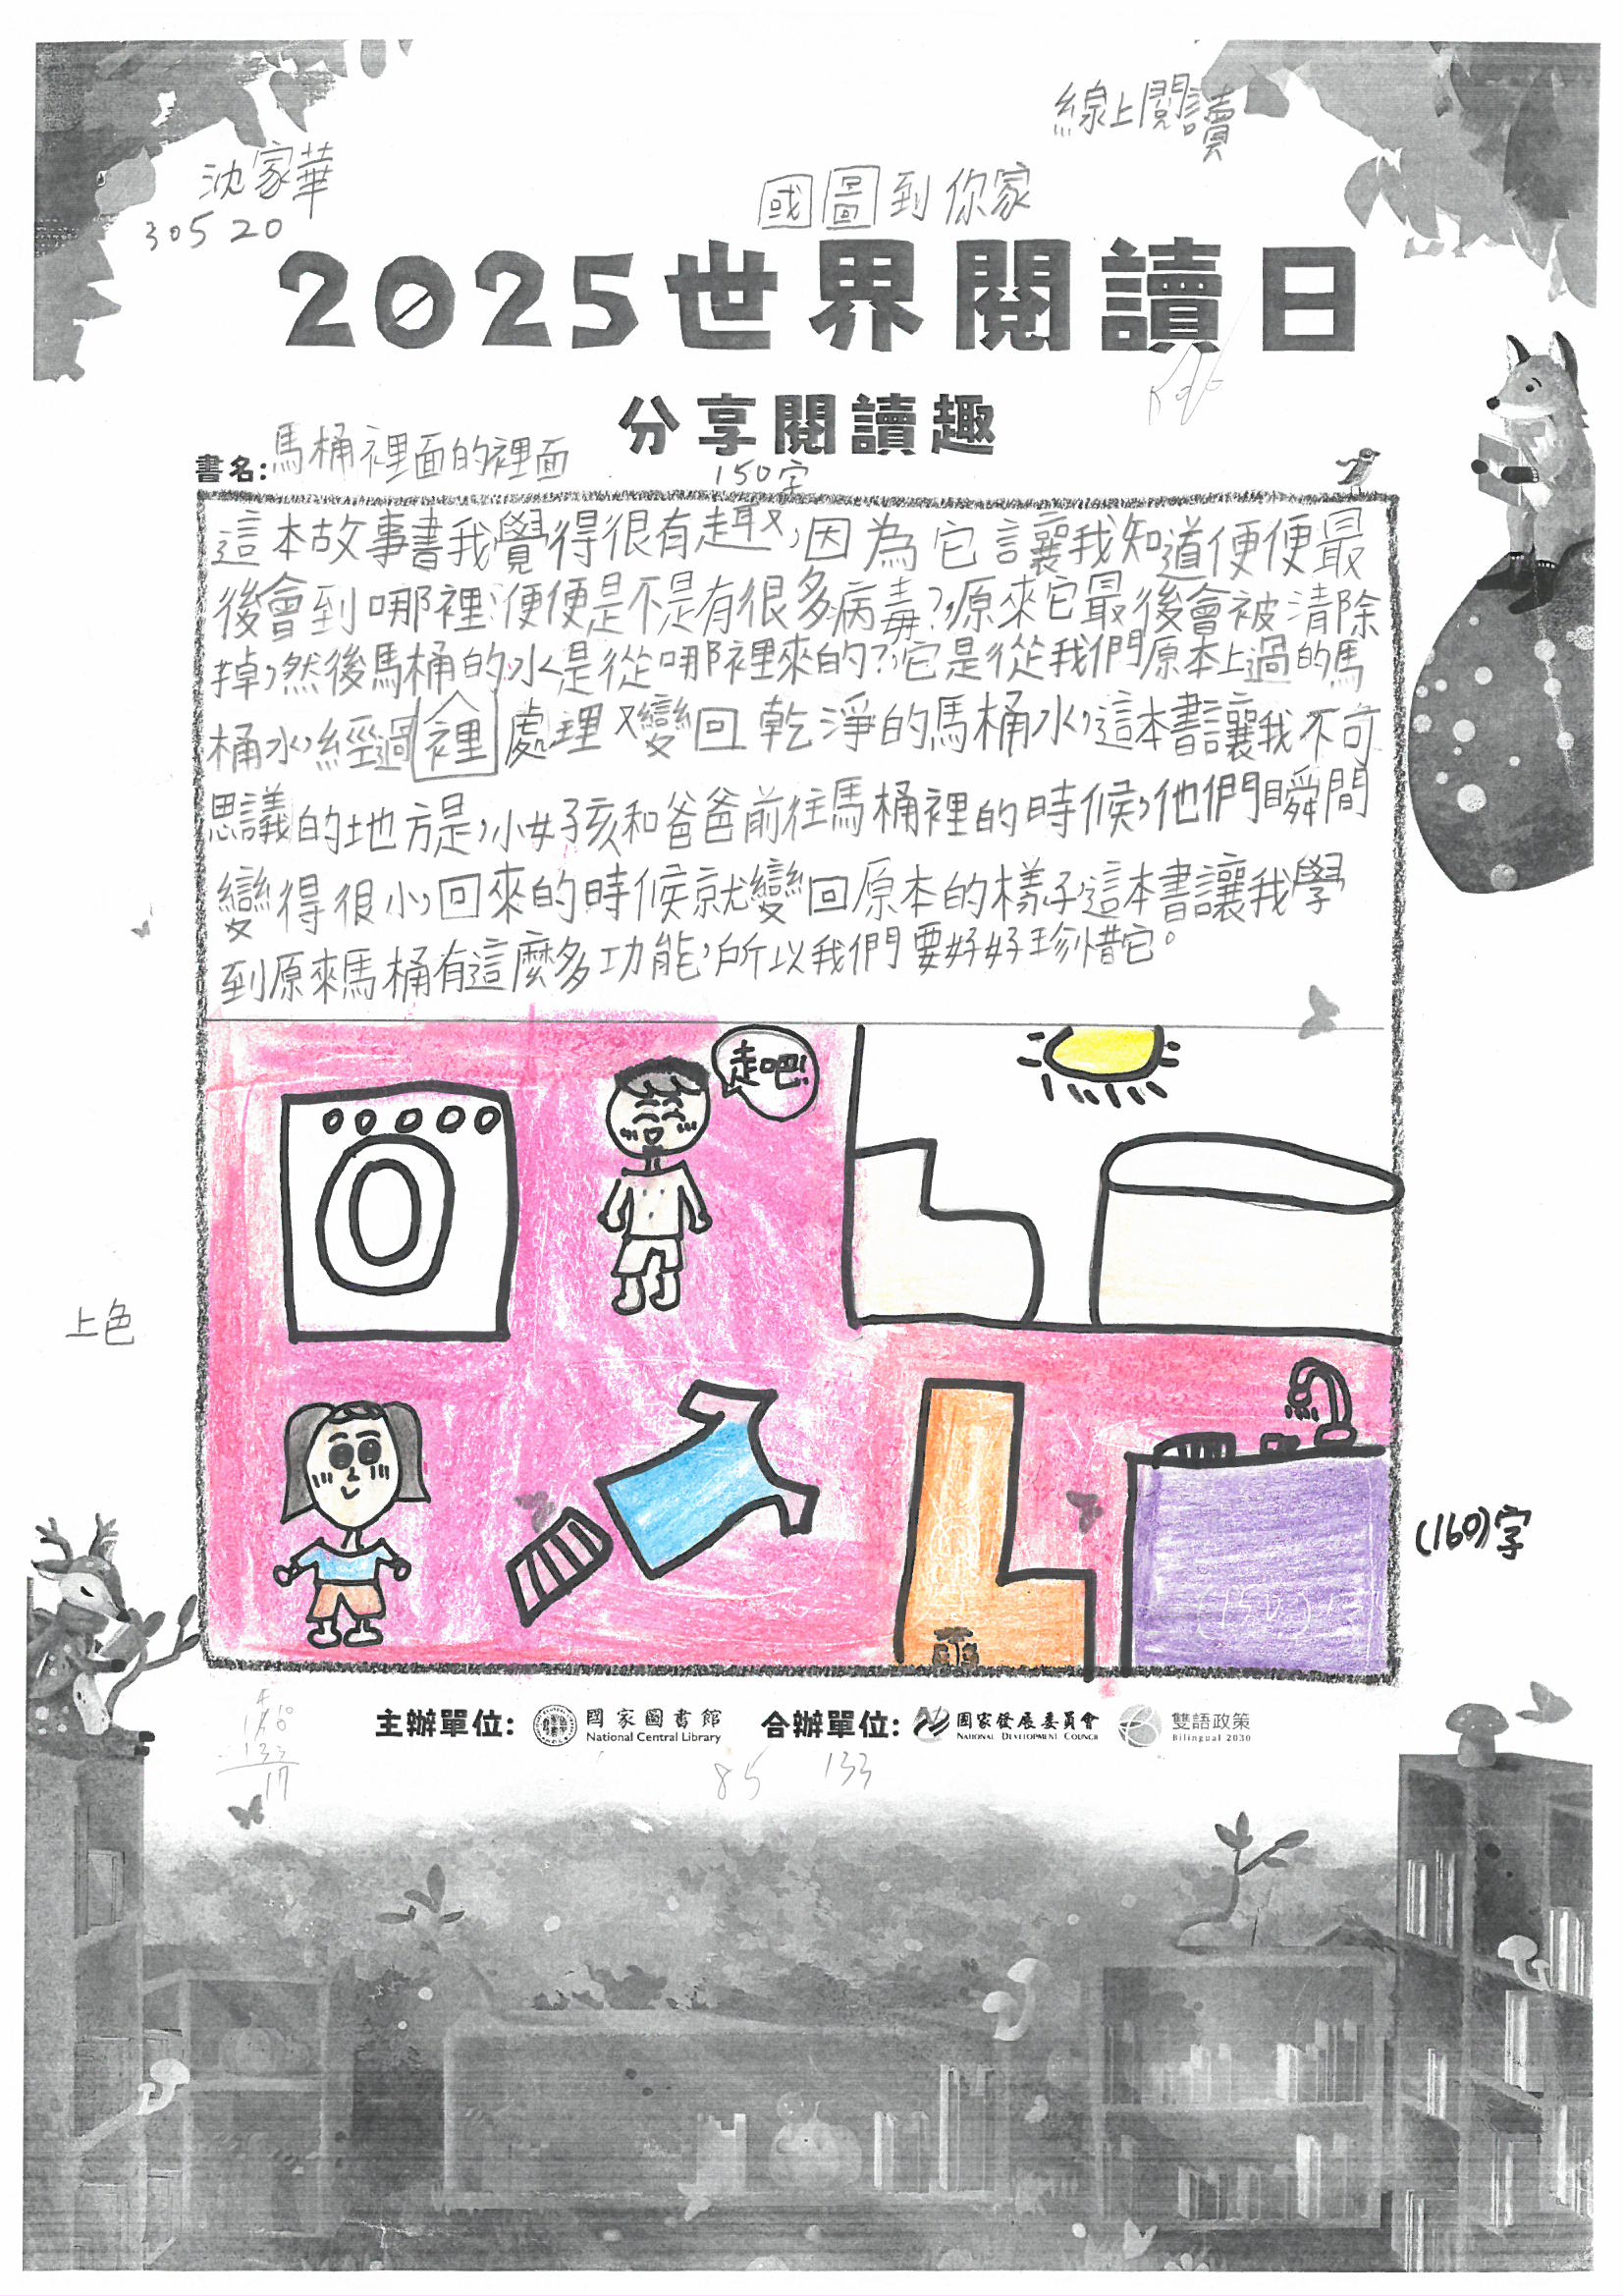 線上閱讀
沈家華
30520
國圖到你家
2025世界閱讀日
分享閱讀趣
書名:馬桶裡面的裡面
150字
這本故事書我覺得很有趣,因為它讓我知道便便最
後會到哪裡?便便是不是有很多病毒?原來它最後會被清除
掉,然後馬桶的水是從哪裡來的?它是從我們原本上過的馬
桶水,經過裡處理又變回乾淨的馬桶水,這本書讓我不可
思議的地方是,小女孩和爸爸前往馬桶裡的時候,他們瞬間
變得很小,回來的時候就變回原本的樣子,這本書讓我學
到原來馬桶有這麼多功能,所以我們要好好珍惜它。
走吧!
上色
(160)字
主辦單位: 國家圖書館 National Central Library 合辦單位: 國家發展委員會 National Development Council 雙語政策 Bilingual 2030
133
17
85 133